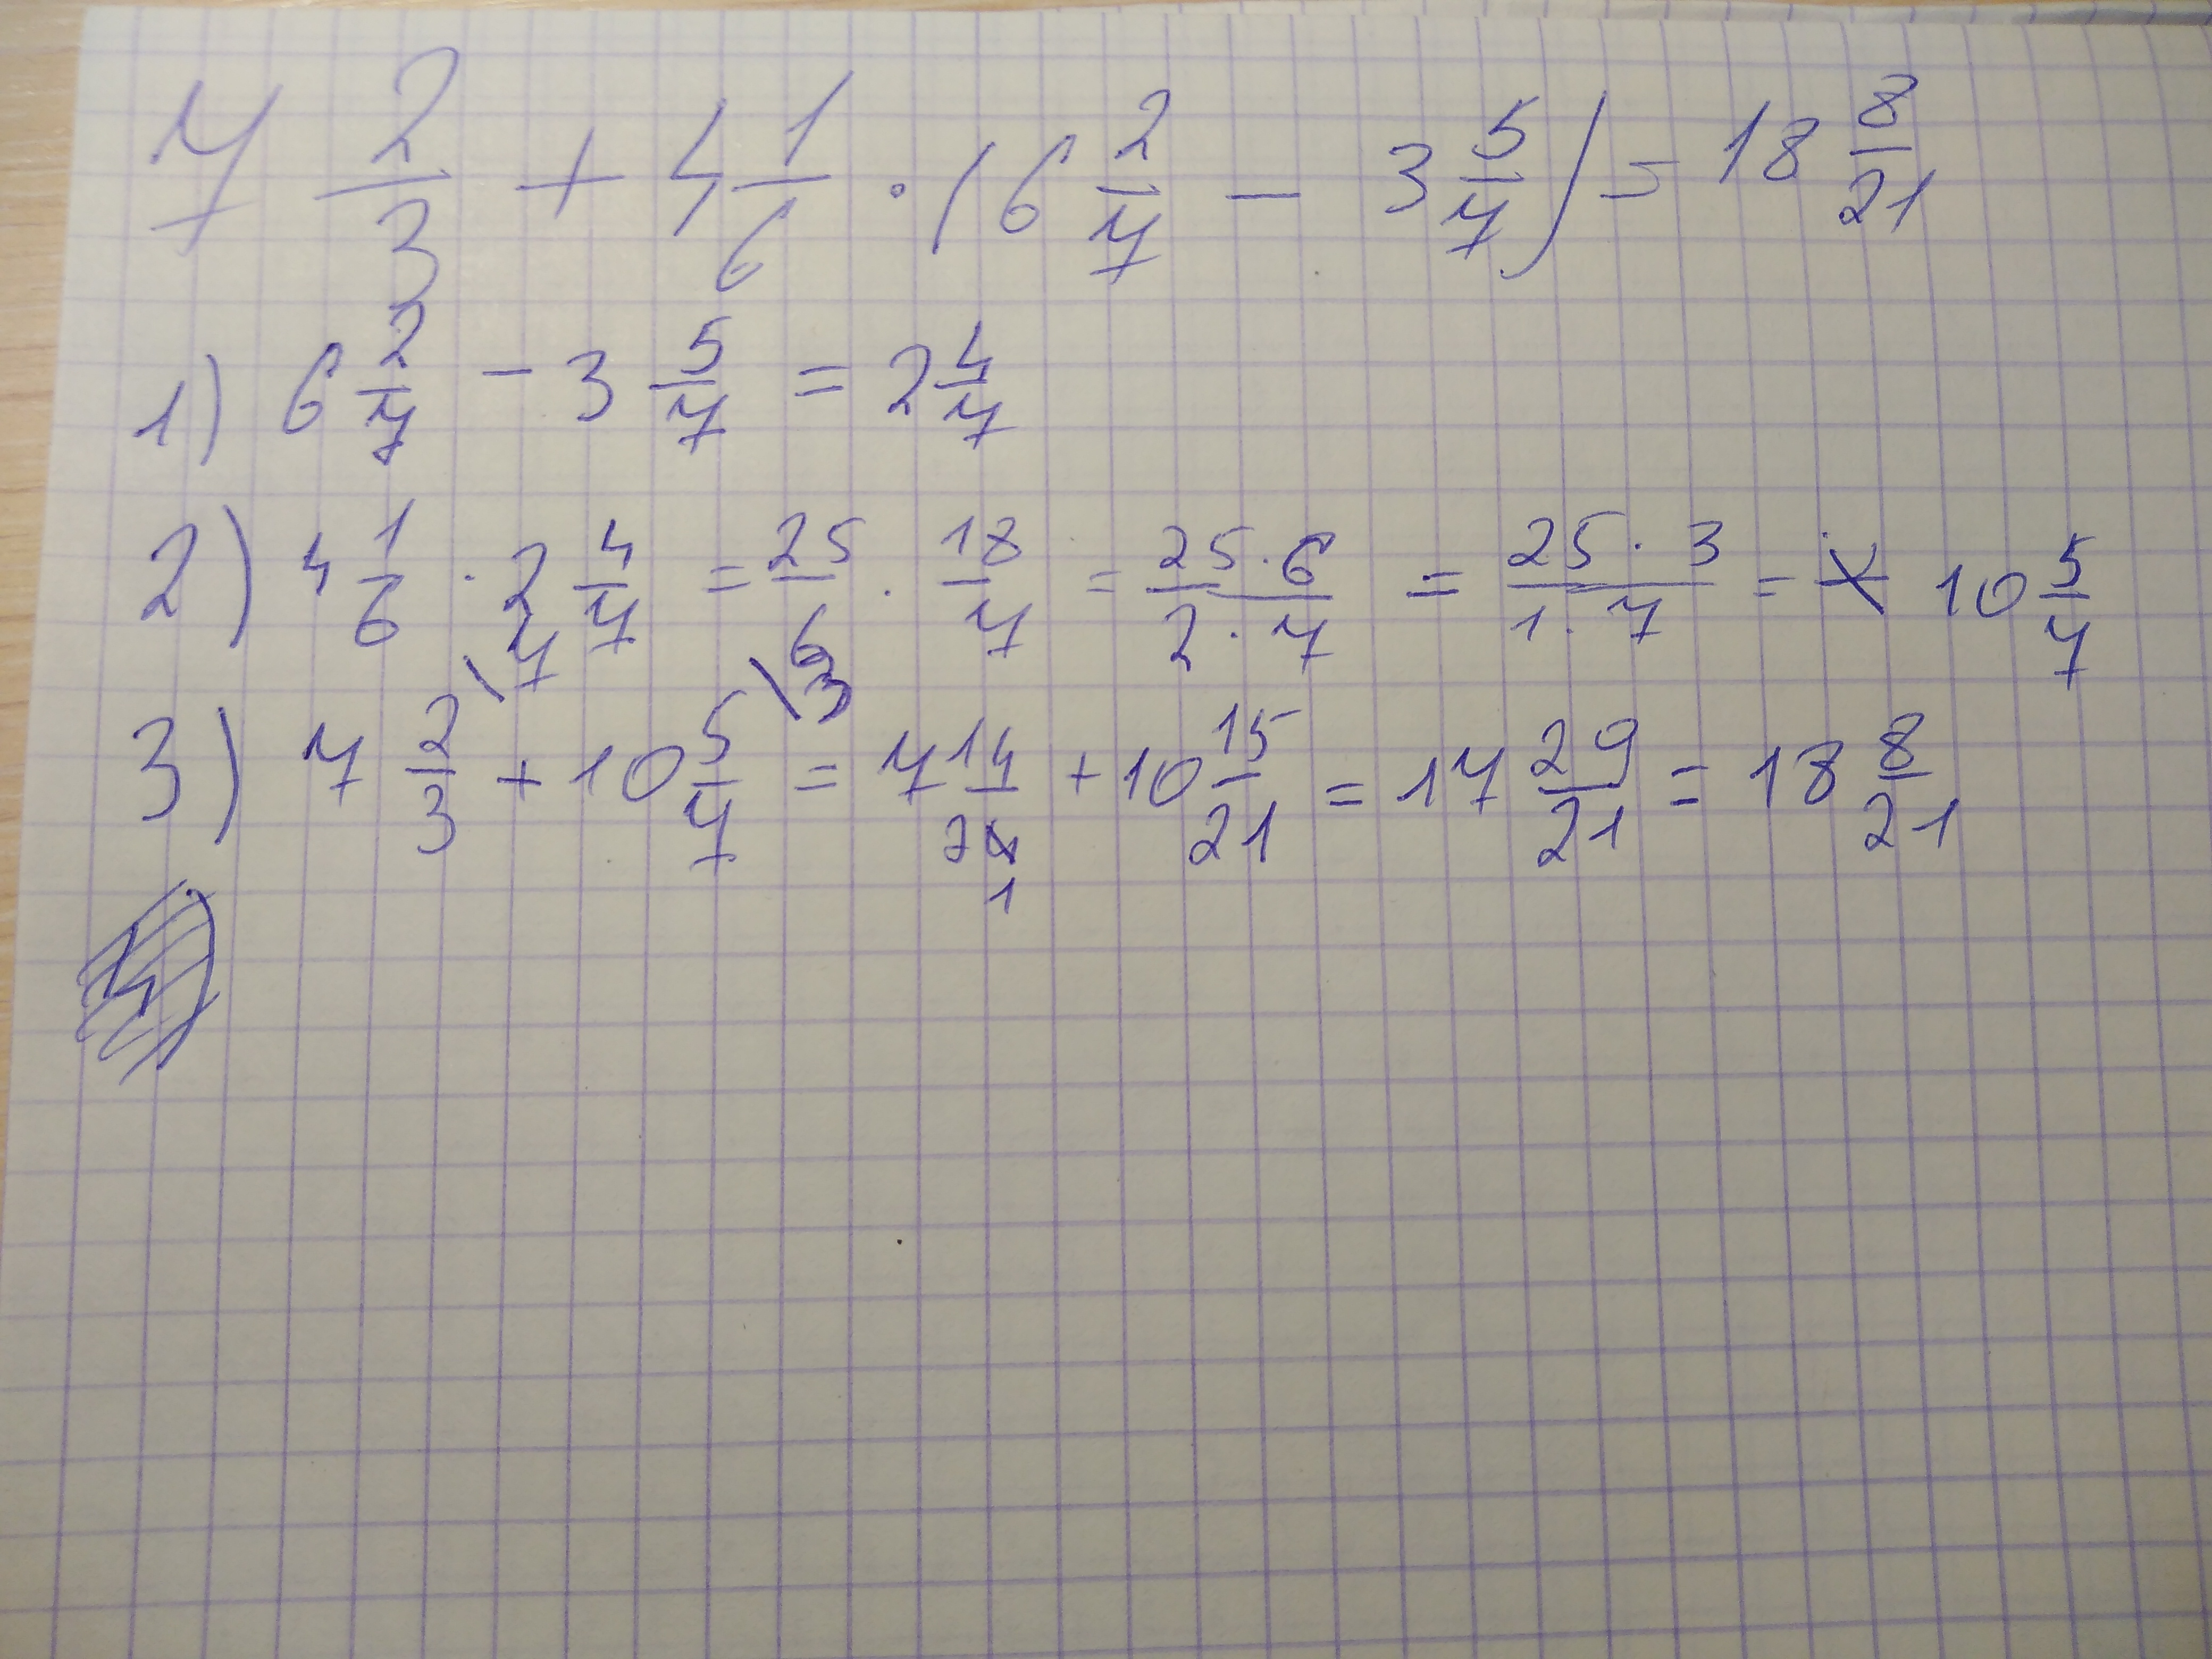 7 2/3 + 4 1/6 · (6 2/7 - 3 5/7) = 18 8/21
1) 6 2/7 - 3 5/7 = 2 4/7
2) 4 1/6 · 2 4/7 = 25/6 · 18/7 = 25·6/2·7 = 25·3/1·7 = 10 5/7
3) 7 2/3 \7 + 10 5/7 \3 = 7 14/21 + 10 15/21 = 17 29/21 = 18 8/21